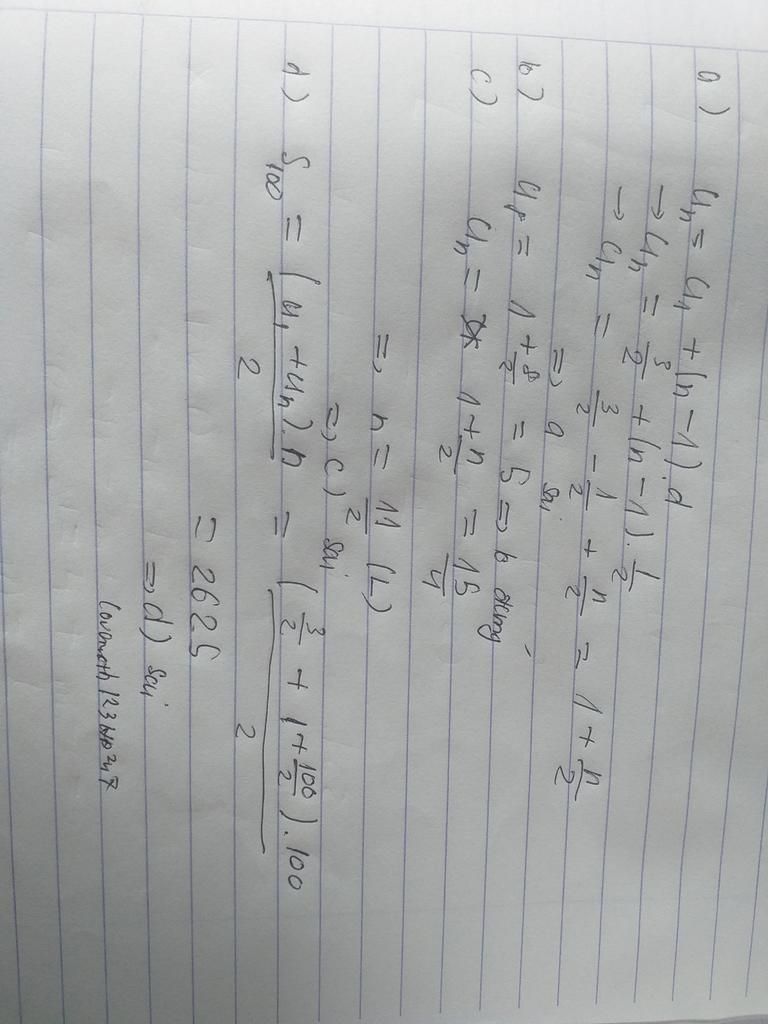 a) uₙ = u₁ + (n – 1).d
→ uₙ = 3/2 + (n – 1). 1/2
→ uₙ = 3/2 – 1/2 + n/2 = 1 + n/2
=> a sai
b) u₈ = 1 + 8/2 = 5 => b đúng
c) uₙ = 1 + n/2 = 15/4
=> n = 11/2 (L)
=> c) sai
d) S₁₀₀ = (u₁ + uₙ).n/2 = (3/2 + 1 + 100/2).100/2
= 2625
=> d) sai